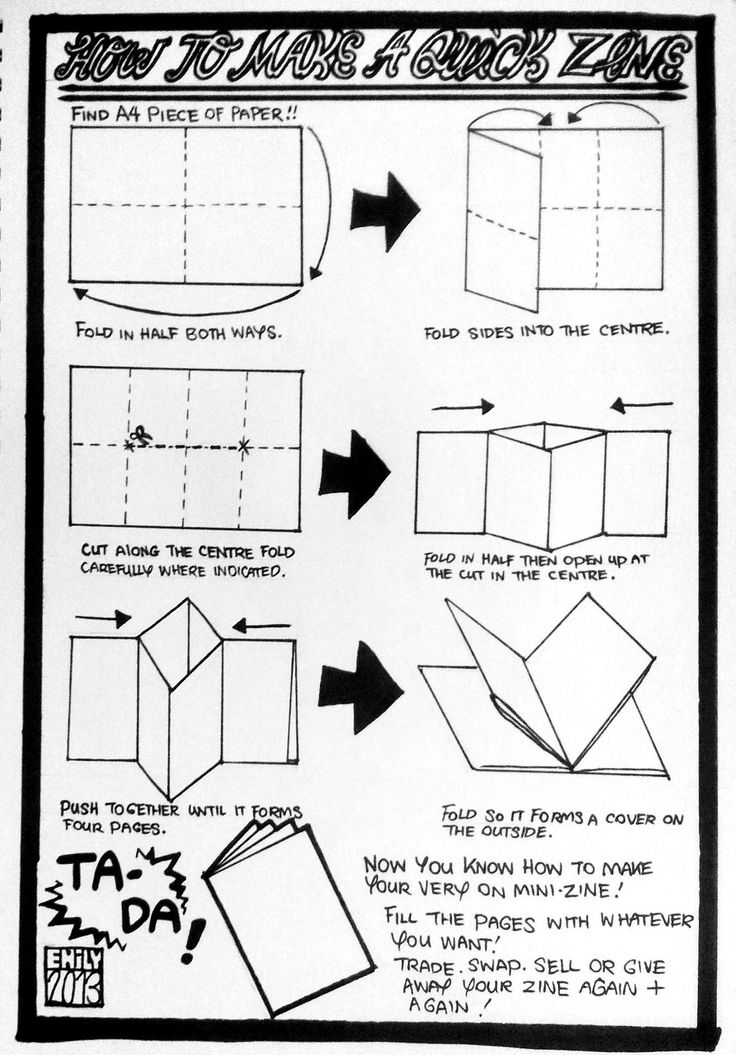 HOW TO MAKE A QUICK ZINE
FIND A4 PIECE OF PAPER!!
FOLD IN HALF BOTH WAYS.
FOLD SIDES INTO THE CENTRE.
CUT ALONG THE CENTRE FOLD
CAREFULLY WHERE INDICATED.
FOLD IN HALF THEN OPEN UP AT
THE CUT IN THE CENTRE.
PUSH TOGETHER UNTIL IT FORMS
FOUR PAGES.
FOLD SO IT FORMS A COVER ON
THE OUTSIDE.
TA-
DA!
NOW YOU KNOW HOW TO MAKE
YOUR VERY ON MINI-ZINE!
FILL THE PAGES WITH WHATEVER
YOU WANT!
TRADE. SWAP. SELL OR GIVE
AWAY YOUR ZINE AGAIN +
AGAIN!
EMILY
2013